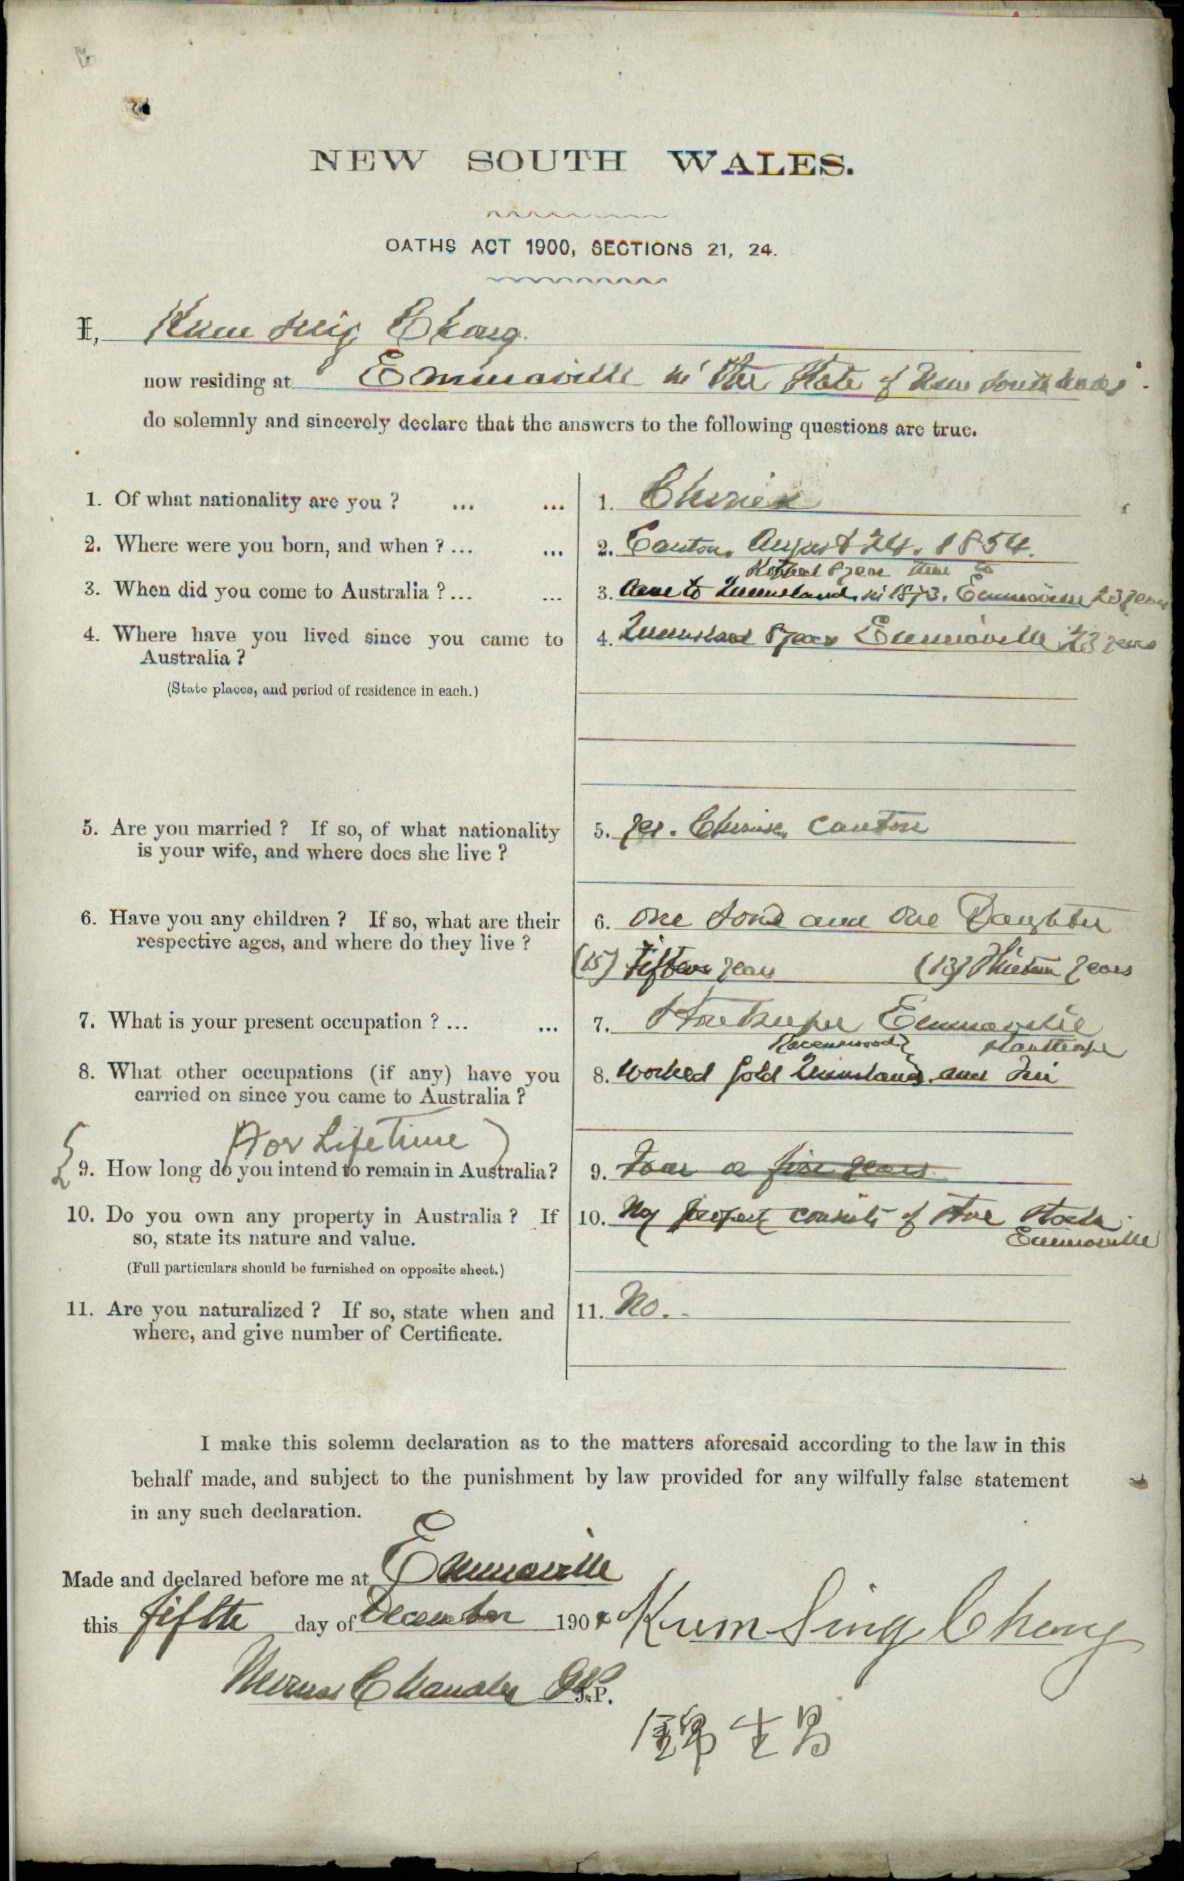 NEW SOUTH WALES.
OATHS ACT 1900, SECTIONS 21, 24.
I, Kum Sing Chong.
now residing at Emmaville in the State of New South Wales.
do solemnly and sincerely declare that the answers to the following questions are true.
1. Of what nationality are you ? ... ... 1. Chinese
2. Where were you born, and when ? ... ... 2. Canton. August 24. 1854.
8 years then to
3. When did you come to Australia ? ... ... 3. Came to Queensland in 1873. Emmaville 23 years
4. Where have you lived since you came to 4. Queensland 8 years Emmaville 23 years
Australia ?
(State places, and period of residence in each.)
5. Are you married ? If so, of what nationality 5. yes. Chinese, Canton
is your wife, and where does she live ?
6. Have you any children ? If so, what are their 6. One Son and One Daughter
respective ages, and where do they live ? (15) Fifteen years (13) Thirteen years
7. What is your present occupation ? ... ... 7. Storekeeper Emmaville
Ravenswood
8. What other occupations (if any) have you 8. Worked Gold Queensland and Tin
carried on since you came to Australia ?
(For Life Time)
9. How long do you intend to remain in Australia? 9. Four or five years
10. Do you own any property in Australia ? If 10. My property consists of Store Stock
so, state its nature and value. Emmaville
(Full particulars should be furnished on opposite sheet.)
11. Are you naturalized ? If so, state when and 11. No.
where, and give number of Certificate.
I make this solemn declaration as to the matters aforesaid according to the law in this
behalf made, and subject to the punishment by law provided for any wilfully false statement
in any such declaration.
Made and declared before me at Emmaville
this fifth day of December 190 Kum Sing Chong
Chandler J.P.
錦生昌